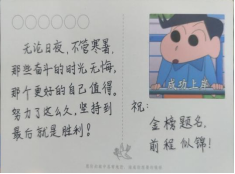 无论日夜,不管寒暑,
那些奋斗的时光无悔,
那个更好的自己值得。
努力了这么久,坚持到
最后就是胜利!
成功上岸
祝:
金榜题名,
前程似锦!